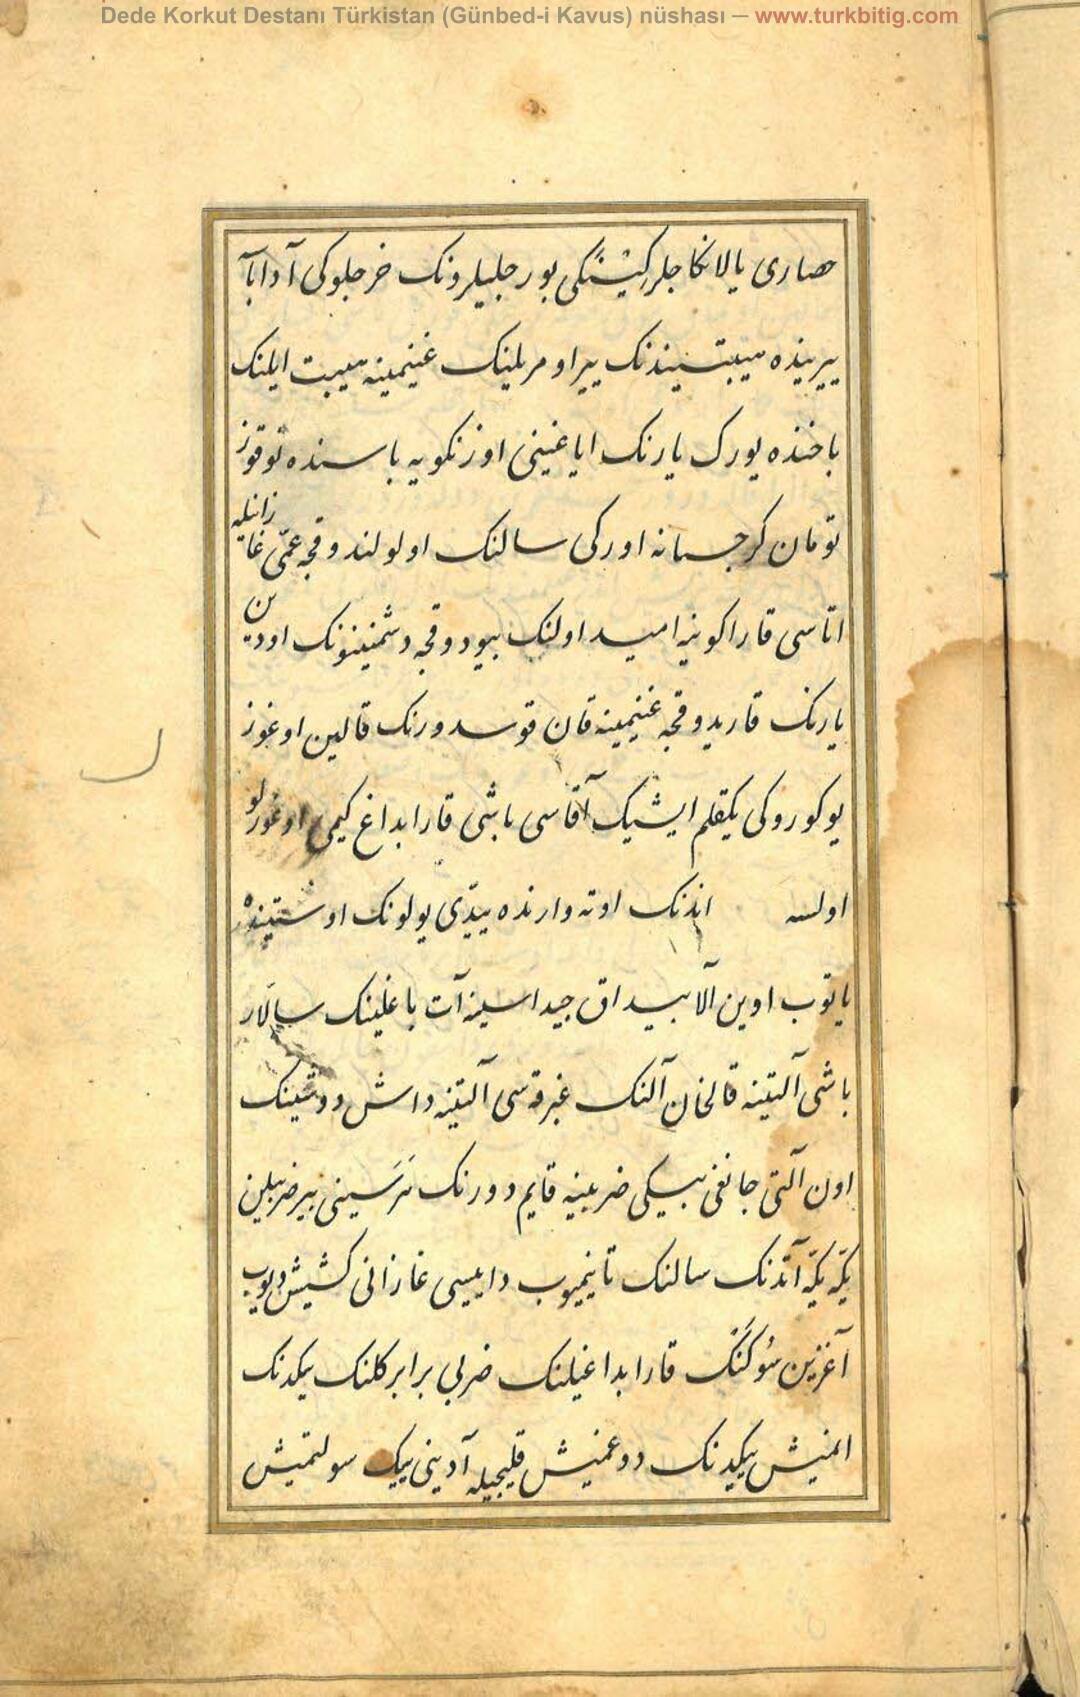 Dede Korkut Destanı Türkistan (Günbed-i Kavus) nüshası — www.turkbitig.com
حصاری یالانکاجلر بورجلیلرونک خرجلوکی آدابا
ییرینده هیبتیندنک ییر اومریلینک غنیمینه هیبت ایلنک
باخنده یورک یارنک ایاغینی اوزنکویه باسنده توقوز
تومان کرجستانه اورکی سالنک اولولندوقجه عمّی غازانیله
اتاسی قاراکونیه امید اولنک بیودوقجه دشمنینونک اودین
یارنک قاریدوقجه غنیمینه قان قوسدورنک قالین اوغوز
یوکوروکی یکقلم ایشیک آقاسی باشی قارابداغ کیمی اوغورلو
اولسه اندنک اوته وارنده ییدّی یولونک اوستینده
یاتوب اوین آلا بیداق جیداسینه آت باغلینک سالار
باشی آلتینه قالخان آلنک غبرقه‌سی آلتینه داش دوشینک
اون آلتی جانفی بیکی ضربینه قایم دورنک نَرَسینی بیر ضربیلین
یکّه یکّه آتدنک سالنک تانیمیوب داییسی غازانی کشیش دیوب
آغزین سُوکَنک قارابداغیلنک ضربی برابر کلنک ییکدنک
انمیش ییکیدنک دوغمیش قلیجیله آدینی ییک سولتمیش